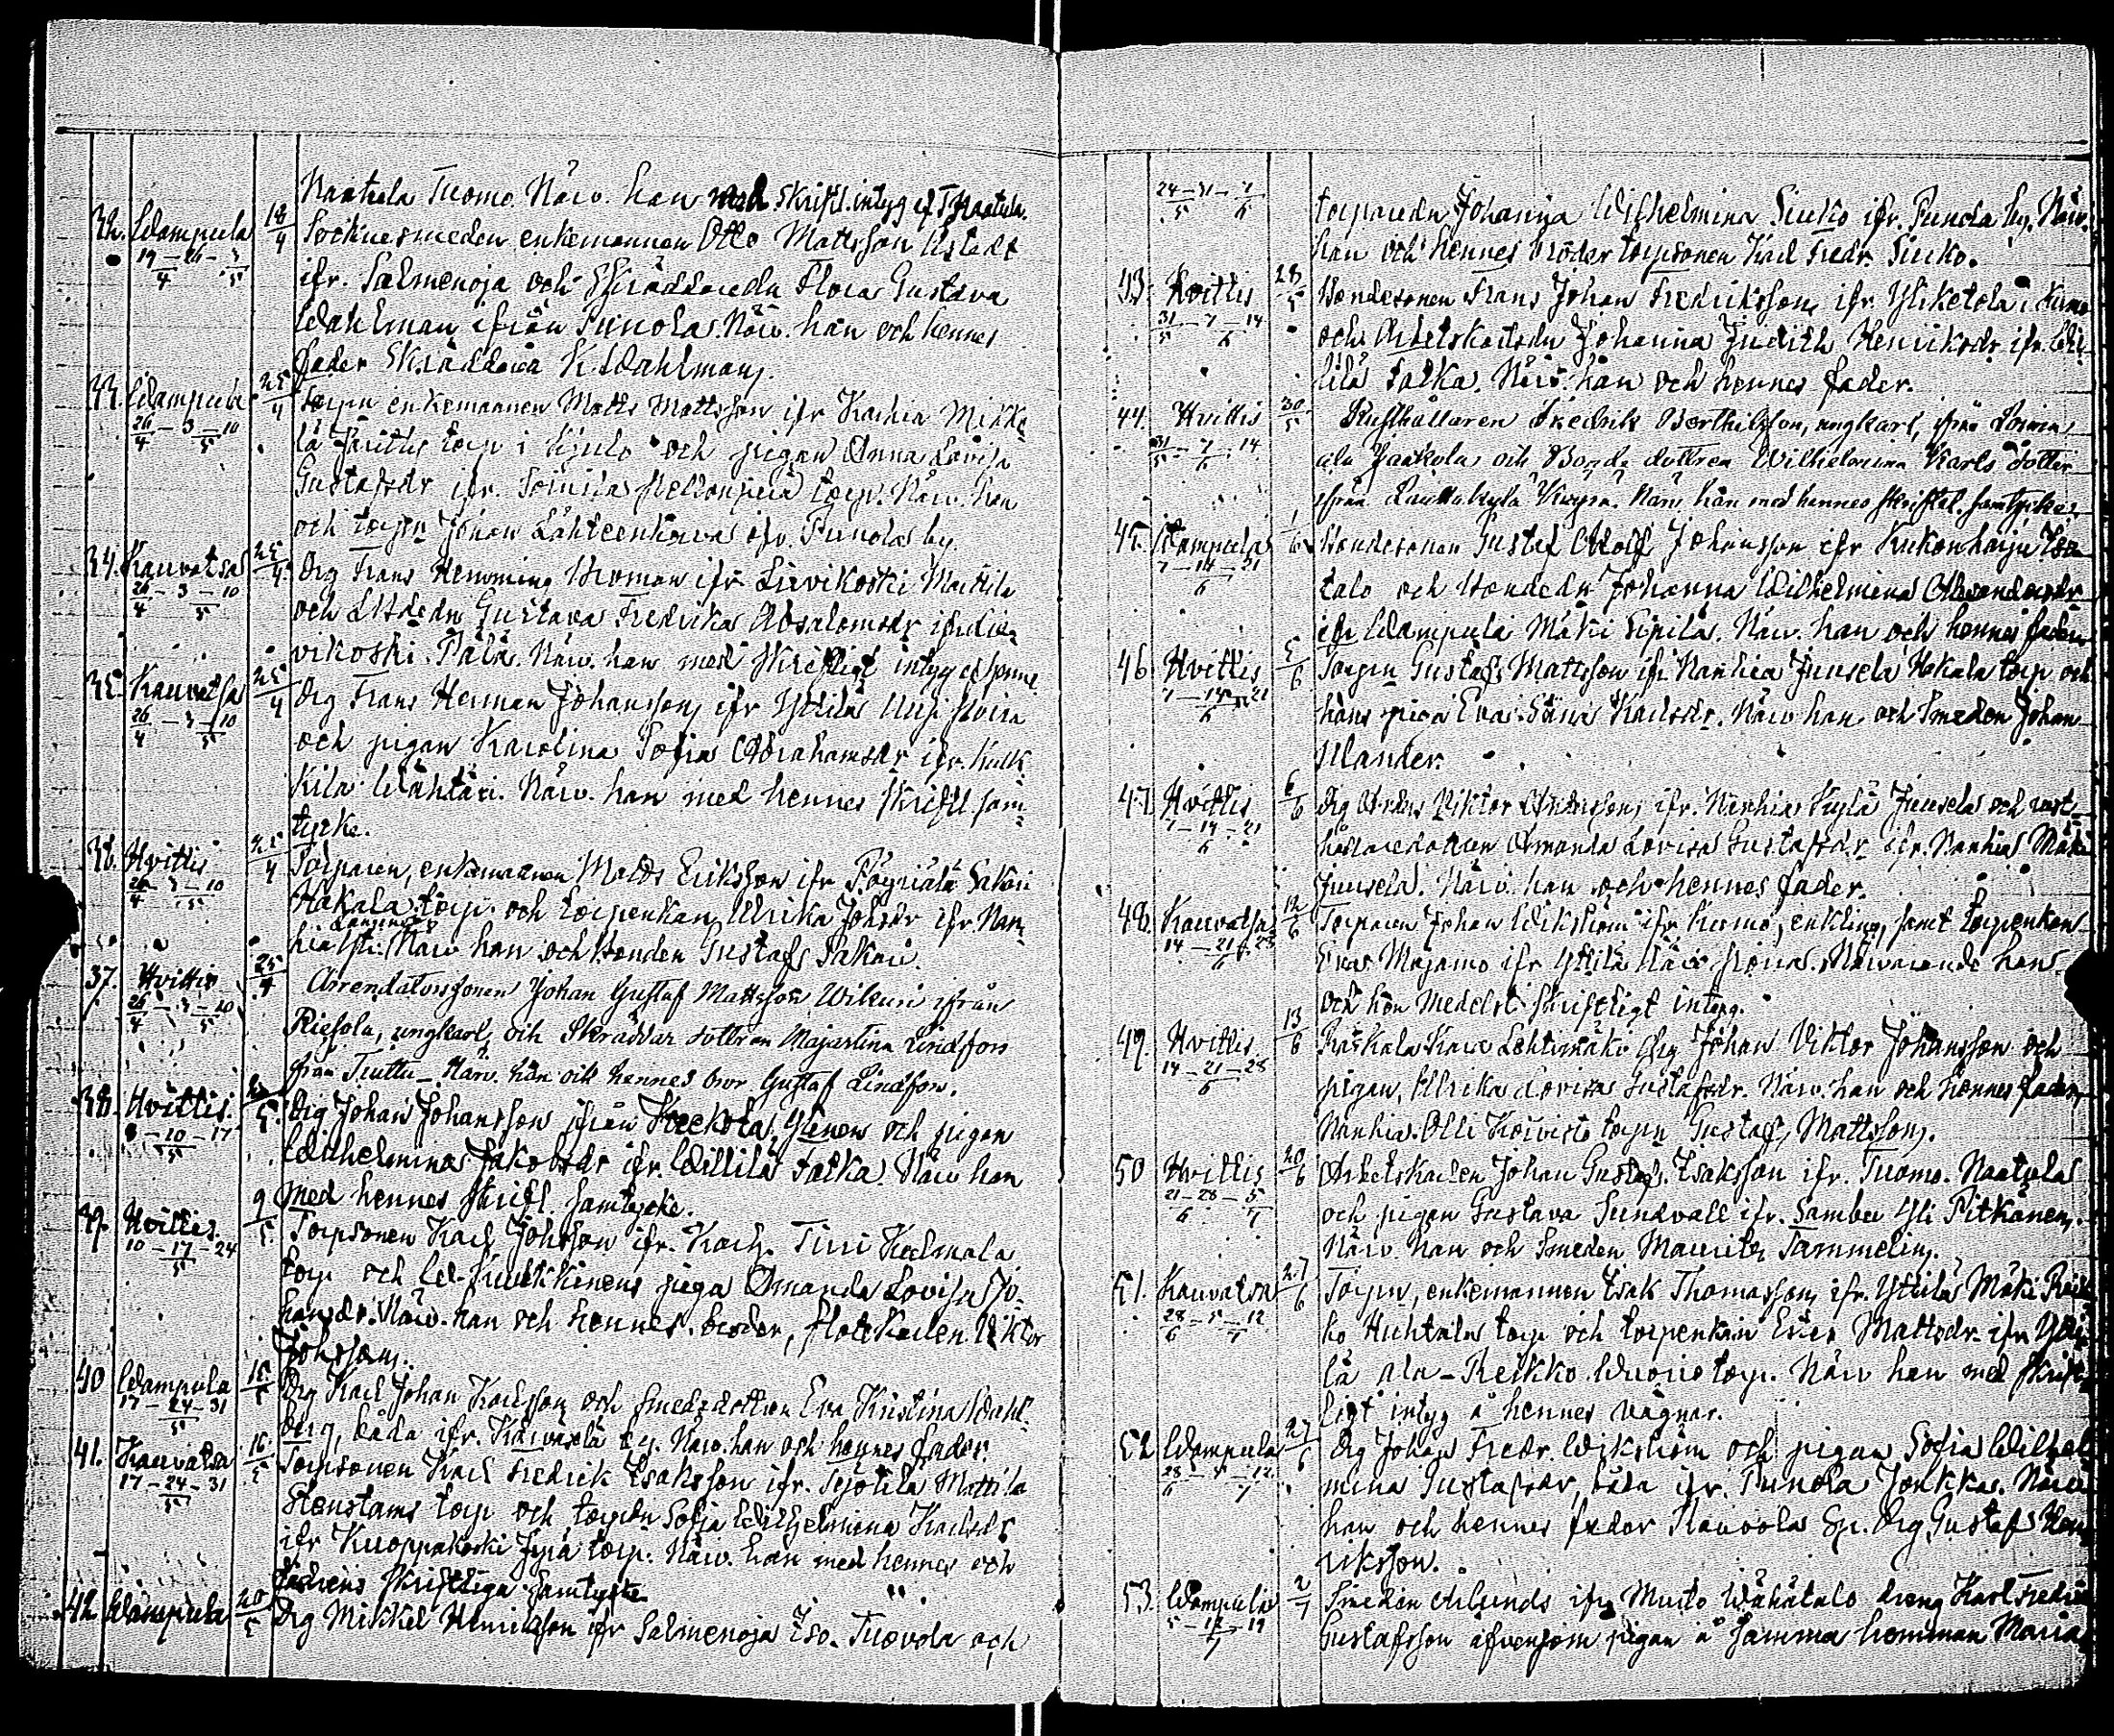 Naatula Tuomo. Närv. han med skriftl. intyg af Naatula.
32. Wampula 18/4 Socknesmeden, enkemannen Otto Mattsson Ustedt
19 – 26 – 3
4 5
ifr. Salmenoja och Skräddaredn Flora Gustava
Wahlman ifrån Punola. Närv. han och hennes
fader Skräddare K. Wahlman.
33. Wampula 25/4 Torpn enkemannen Matts Mattsson ifr
26 – 3 – 10
4 5
torp i Kjulo och pigan Anna Lovisa
Gustafsdr ifr. Soinila torp. Närv. han
och torpn Johan Lähteenkorva ifr. Punola by.
34. Kauvatsa 25/4 Drg Frans Hemming Herman ifr Lievikoski Mattila
26 – 3 – 10
4 5
och Gustava Fredrika Absalomsdr ifr Lie-
vikoski Pälä. Närv. han med skriftligt intyg af henne.
35. Kauvatsa 25/4 Drg Frans Herman Johansson ifr Yttilä
26 – 3 – 10
4 5
och pigan Karolina Sofia Abrahamsdr ifr. Kulk-
kila Wähtäri. Närv. han med hennes skriftl. sam-
tycke.
36. Hvittis 25/4 Torparen, enkemannen Matts Eriksson ifr Pöyriälä Sakari
26 – 3 – 10
4 5
Hakala torp och torpenkan Ulrika Johsdr ifr. Nan-
hia Närv han och bonden Gustaf Sakari.
37. Hvittis 25/4 Arrendatorssonen Johan Gustaf Mattsson Wikuri ifrån
26 – 3 – 10
4 5
Riesola, ungkarl, och Skräddar dottren Majastina Lindfors
från Tiuttu – Närv. han och hennes bror Gustaf Lindfors.
38. Hvittis Drg Johan Johansson ifrån Keekola, Ylenen och pigan
3 – 10 – 17
5
Wilhelmina Jakobsdr ifr. Willilä Salka. Närv han
med hennes skriftl. samtycke.
39. Hvittis 9/5 Torpsonen Karl Johsson ifr. Karh. Tiiri Kalmala
10 – 17 – 24
5
torp och piga Amanda Lovisa Jo-
hansdr. Närv. han och hennes broder, flotekarlen Viktor
Johsson.
40 Wampula 16/5 Drg Karl Johan Karlsson och Smedsdottren Eva Kristina Wahl-
17 – 24 – 31
5
berg, båda ifr. by. Närv. han och hennes fader.
41. Kauvatsa 16/5 Torpsonen Karl Fredrik Isaksson ifr. Sejotila Mattila
17 – 24 – 31
5
Stenstams torp och torpdn Sofia Wilhelmina Karlsdr
ifr Kuoppakoski Jyrä torp. Närv. han med hennes och
faderns skriftliga samtycke.
42 Wampula 20/5 Drg Mikkel Henriksson ifr Salmenoja Iso-Tuovola och
24 – 31 – 7
5 6
torparedn Johanna Wilhelmina Siuko ifr. Punola by. Närv.
han och hennes broder torpsonen Karl Fredr. Siuko.
43. Hvittis 28/5 Bondesonen Frans Johan Fredriksson, ifr. Yliketola i Kumo
31 – 7 – 14
5 6
och Arbetskarlsdn Johanna Judith Henriksdr ifr. Wil-
lilä Salka. Närv. han och hennes fader.
44. Hvittis 30/5 Rusthållaren Fredrik Berthilsson, ungkarl, från
31 – 7 – 14
5 6
ala Jaakola och Bonde dottren Wilhelmina Karls dotter
från Närv. han med hennes skriftl. samtycke.
45. Wampula Bondesonen Gustaf Adolf Johansson ifr Kukonharju Iso-
7 – 14 – 21
6
talo och bondedr Johanna Wilhelmina Alexandersdr
ifr Wampula Mäki Sipilä. Närv. han och hennes fader.
46 Hvittis 5/6 Torpn Gustaf Mattsson ifr Nanhia Juusela Hakala torp och
7 – 14 – 21
6
hans piga Eva Karlsdr. Närv han och Smeden Johan
Silander.
47. Hvittis 6/6 Drg Anders Viktor Andersson, ifr. Nanhia Kylä Juusela och rust-
7 – 14 – 21
6
hållaredottren Amanda Lovisa Gustafsdr ifr. Nanhia Mäki
Juusela. Närv. han och hennes fader.
48. Kauvatsa 12/6 Torparen Johan Wikström ifr Kumo, enkling, samt torpenkan
14 – 21 – 28
6
Eva Majamo ifr Yttilä Närvarande han
och hon medelst skriftligt intyg.
49. Hvittis 13/6 Räikälä Lehtimäki drg Johan Viktor Johansson och
14 – 21 – 28
6
pigan, Ulrika Lovisa Gustafsdr. Närv. han och hennes fader,
Nanhia Olli Koivisto torpn Gustaf Mattsson.
50 Hvittis 20/6 Arbetskarlen Johan Gustaf Isaksson ifr. Tuomo Naatula
21 – 28 – 5
6 7
och pigan Gustava Sundvall ifr. Sambu Yli Pitkänen.
Närv. han och Smeden Mauritz Tammelin.
51. Kauvatsa 27/6 Torpn, enkemannen Isak Thomasson, ifr. Yttilä Mäki Reik-
28 – 5 – 12
6 7
ko Huhtala torp och torpenkan Erika Mattsdr ifr Ytti-
lä Ala-Reikko Wuorio torp. Närv han med skrift-
ligt intyg å hennes vägnar.
52 Wampula 27/6 Drg Johan Fredr. Wikström och pigan Sofia Wilhel-
28 – 5 – 12
6 7
mina Gustafsdr, båda ifr. Punola Jonkka. Närv
han och hennes fader Drg Gustaf Hen-
riksson.
53. Wampula 2/7 Smeden Ahlunds ifr Musto Wähätalo dreng Karl Fredrik
5 – 12 – 19
7
Gustafsson äfvensom pigan å samma hemman Maria